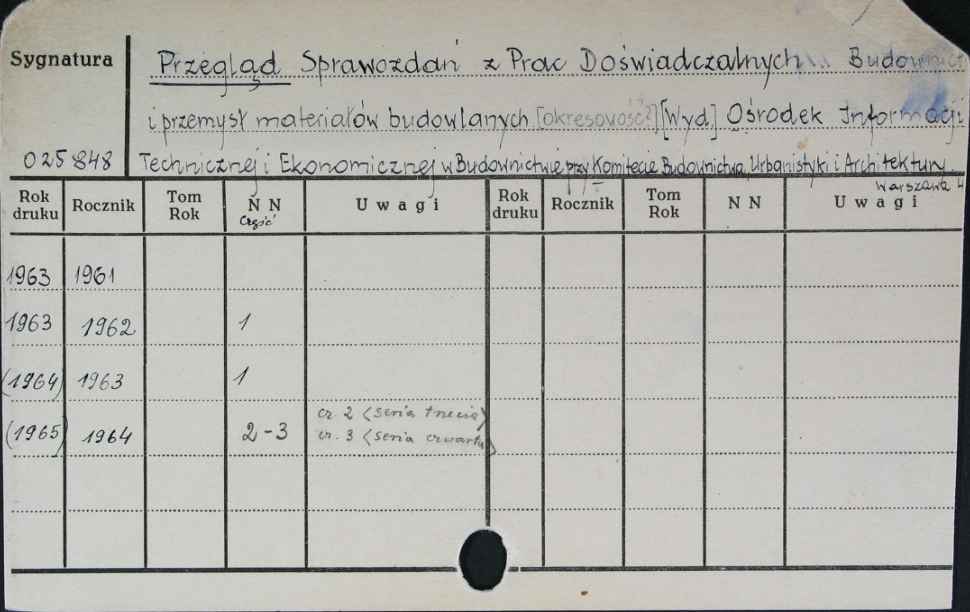 Sygnatura
Przegląd Sprawozdań z Prac Doświadczalnych Budownict
i przemysł materiałów budowlanych [okresowość?] [Wyd.] Ośrodek Informacji
025848 Technicznej i Ekonomicznej w Budownictwie przy Komitecie Budownictwa, Urbanistyki i Architektury
Warszawa
Rok druku Rocznik Tom Rok N N Uwagi Rok druku Rocznik Tom Rok N N Uwagi
Część
1963 1961
1963 1962 1
(1964) 1963 1
cz. 2 (seria trzecia)
(1965) 1964 2-3 cz. 3 (seria czwarta)